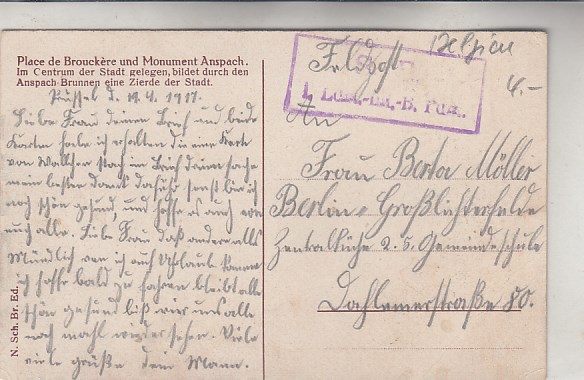 Place de Brouckère und Monument Anspach.
Im Centrum der Stadt gelegen, bildet durch den
Anspach-Brunnen eine Zierde der Stadt.
Brüssel d. 19.4.1917.
Liebe Frau deinen Brief und beide
Karten habe ich erhalten die eine Karte
von
meinen besten Dank dafür sonst bin ich
noch schön gesund, und hoffe es auch von
euch alle. Liebe Frau das andere alls
Mündlich wen ich auf Uhrlaub komme
ich hoffe bald zu fahren bleibt alle
schön gesund bis wier uns alle
noch mahl wieder sehen. Viele
viele grüße dein Mann.
N. Sch. Br. Ed.
Feldpost
Belgien
4.-
An
Frau Berta Möller
Berlin-Großlichterfelde
Zentralküche 2. S. Gemeindeschule
Dahlemerstraße 80.